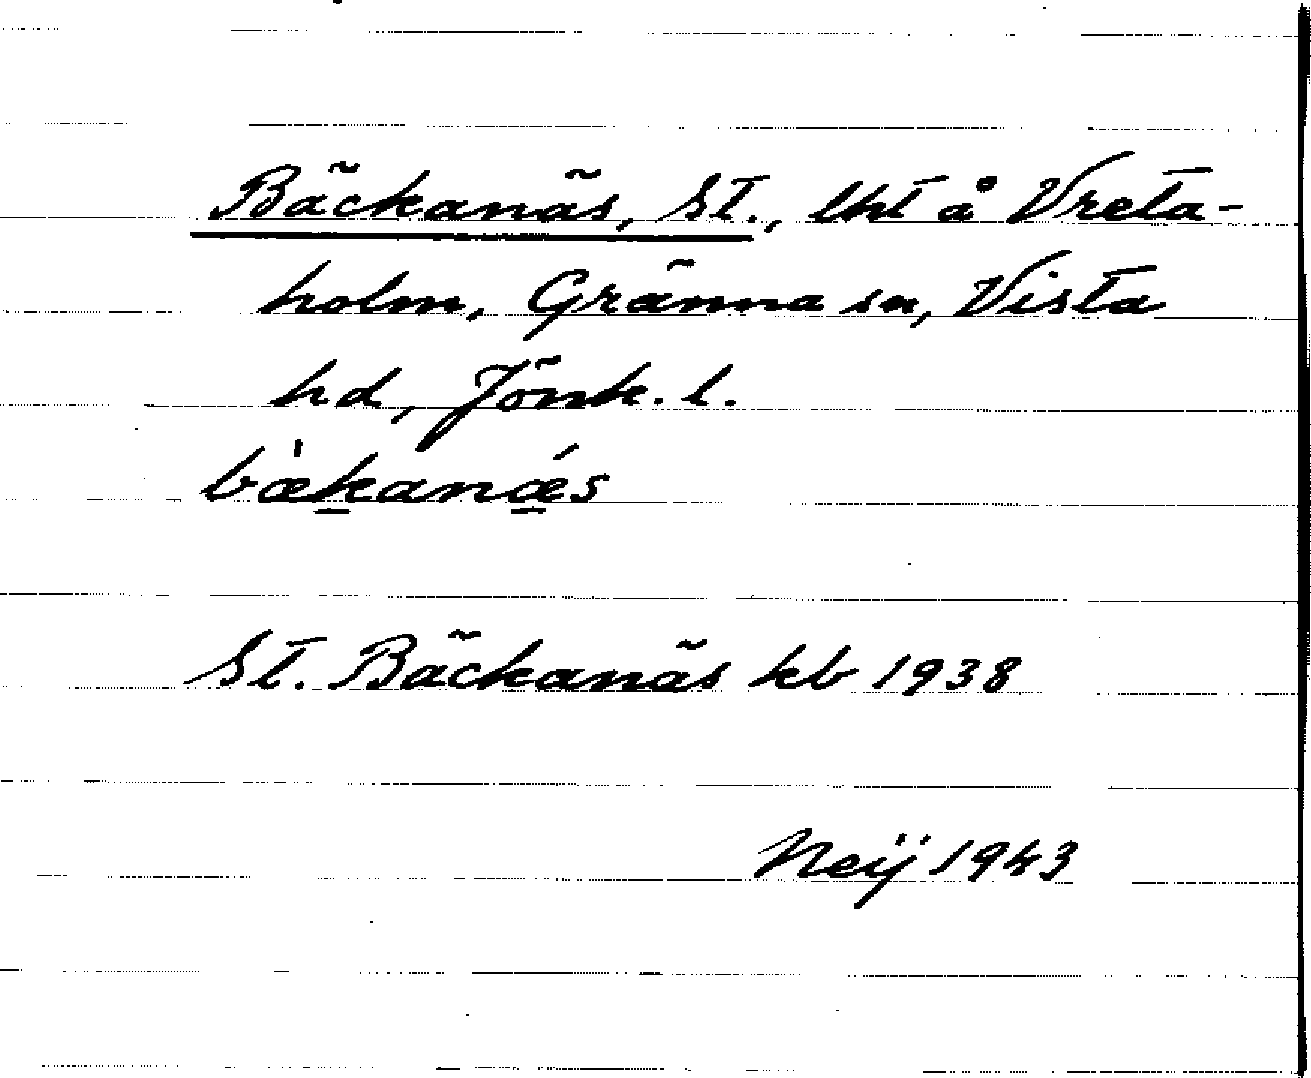 Bäckanäs, St., lht å Vreta-
holm, Gränna sn, Vista
hd, Jönk. l.
bæ̀k̠anǽ̠s
St. Bäckanäs kb 1938
Neij 1943